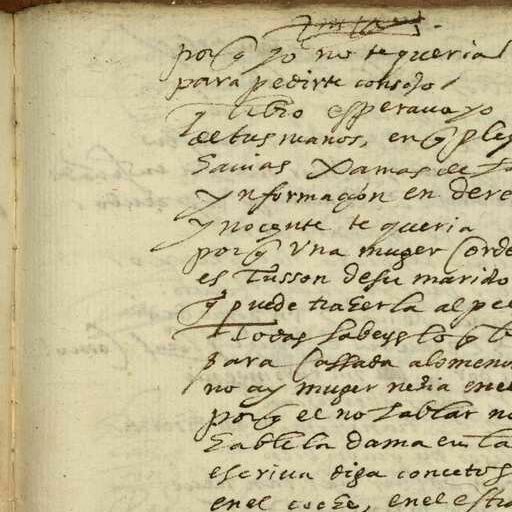 porq̃ yo no te queria
para pedirte consejo
q̃ esperaua yo
de tus manos, en q̃
damas de
ynformaçion en dere
ynocente te queria
porq̃ vna muger
es de su marido
q̃ puede trazerla al pe
todas sabeys lo q̃
para callada alomeno
no ay muger nezia en el
porq̃ el no hablar
hable la dama en la
escriua diga concetos
en el coche, en el estra